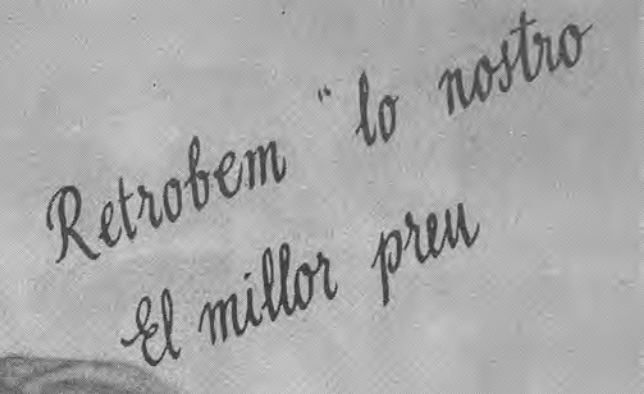 Retrobem " lo nostro
El millor preu